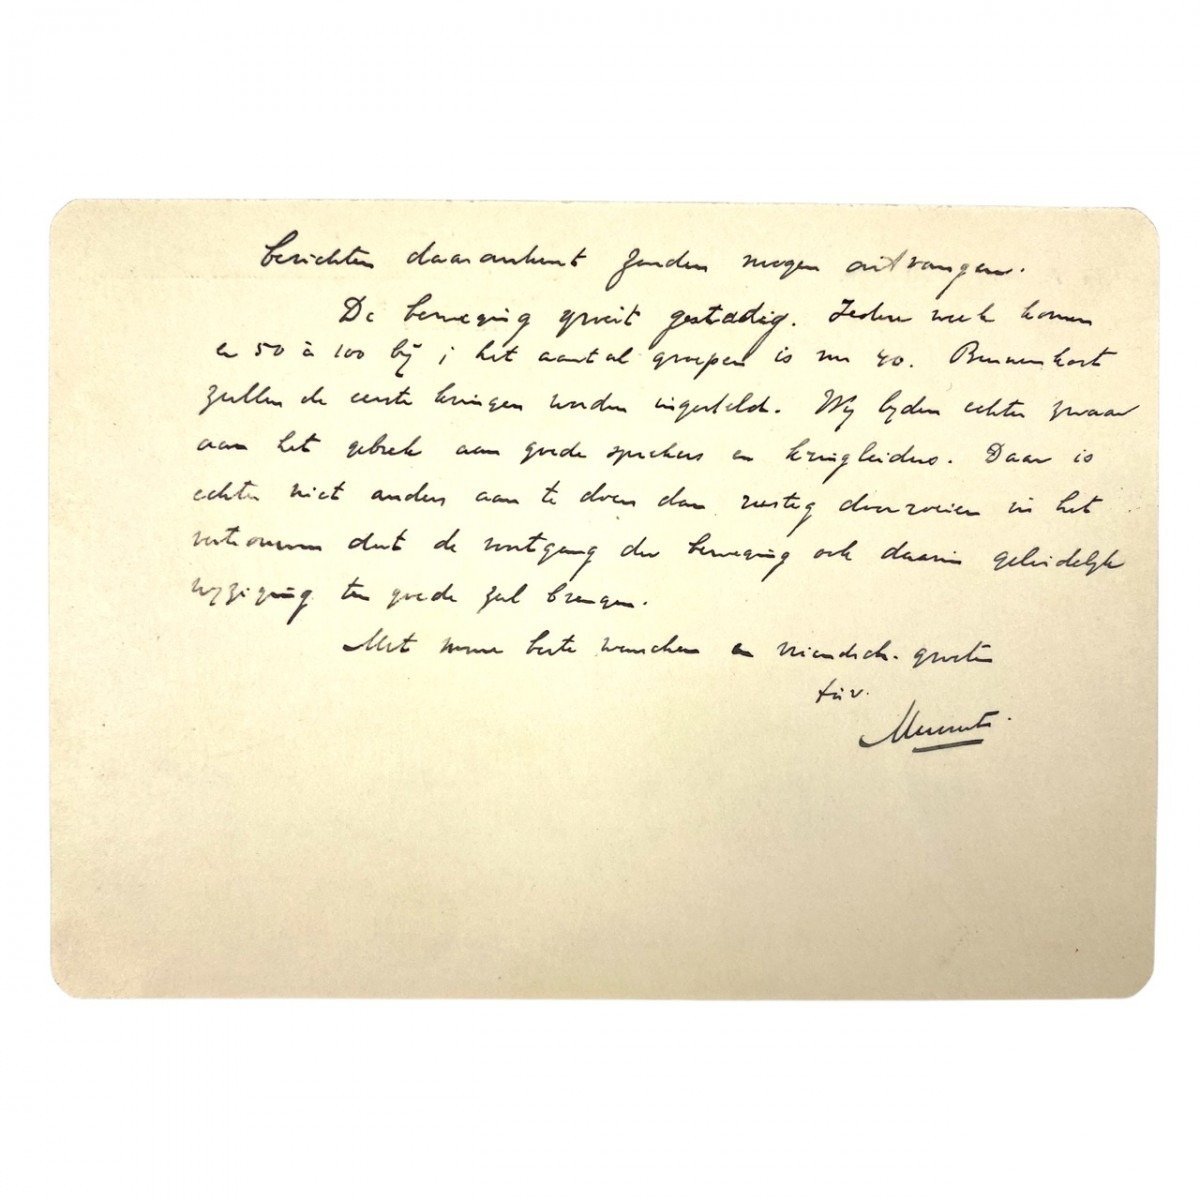 berichten daaromtrent zouden mogen ontvangen.
De beweging groeit gestadig. Iedere week komen
er 50 à 100 bij; het aantal groepen is nu 40. Binnenkort
zullen de eerste kringen worden ingesteld. Wij lijden echter zwaar
aan het gebrek aan goede sprekers en kringleiders. Daar is
echter niet anders aan te doen dan rustig doorroeien in het
vertrouwen dat de voortgang der beweging ook daarin geleidelijk
wijziging ten goede zal brengen.
Met mijne beste wenschen en vriendsch. groeten
t.à.v.